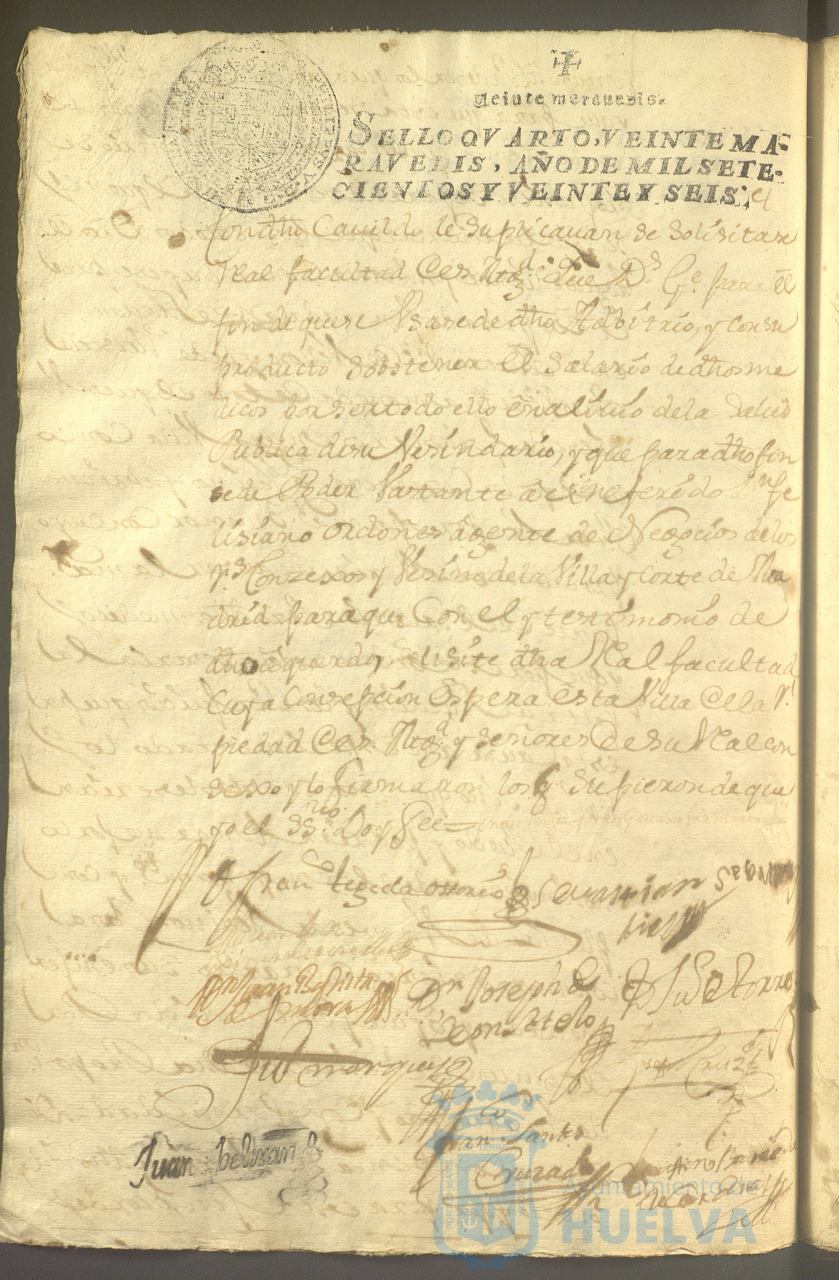 Veinte maravedis.
SELLO QVARTO, VEINTE MA-
RAVEDIS, AÑO DE MIL SETE-
CIENTOS Y VEINTE Y SEIS.
Con dho Cauildo le suplicauan se solisitase
Real facultad de su Magd. que Ds. Ge. para el
fin de que se Vsase de dho Adbitrio, y con su
producto sobstener El Salario de dhos me
dicos por ser todo ello en aliuio de la Salud
Publica de su Vesindario, y que para dho fin
se de Poder Vastante a el referido Dn. fe
lisiano Ordoñes agente de Negocios de los
Rs. Conzexos y Vesino de la Villa y Corte de Ma
drid para que Con el y testimonio de
dho aquerdo, solisite dha Real facultad
Cuya Consepcion Espera esta Villa de la Rl.
piedad de su Magd. y Señores de su Real con
sexo y lo firmaron los q Supieron de que
yo el Ssno. Doy Fee
Fran tegeda ossorio
Sevastian
Dn. Juan Baptista
de mora
Dn. Joseph de
Leon
de torres
marquez
Cruz
Juan beltran
Juan Santos
Cruzado
Ayuntamiento de
HUELVA